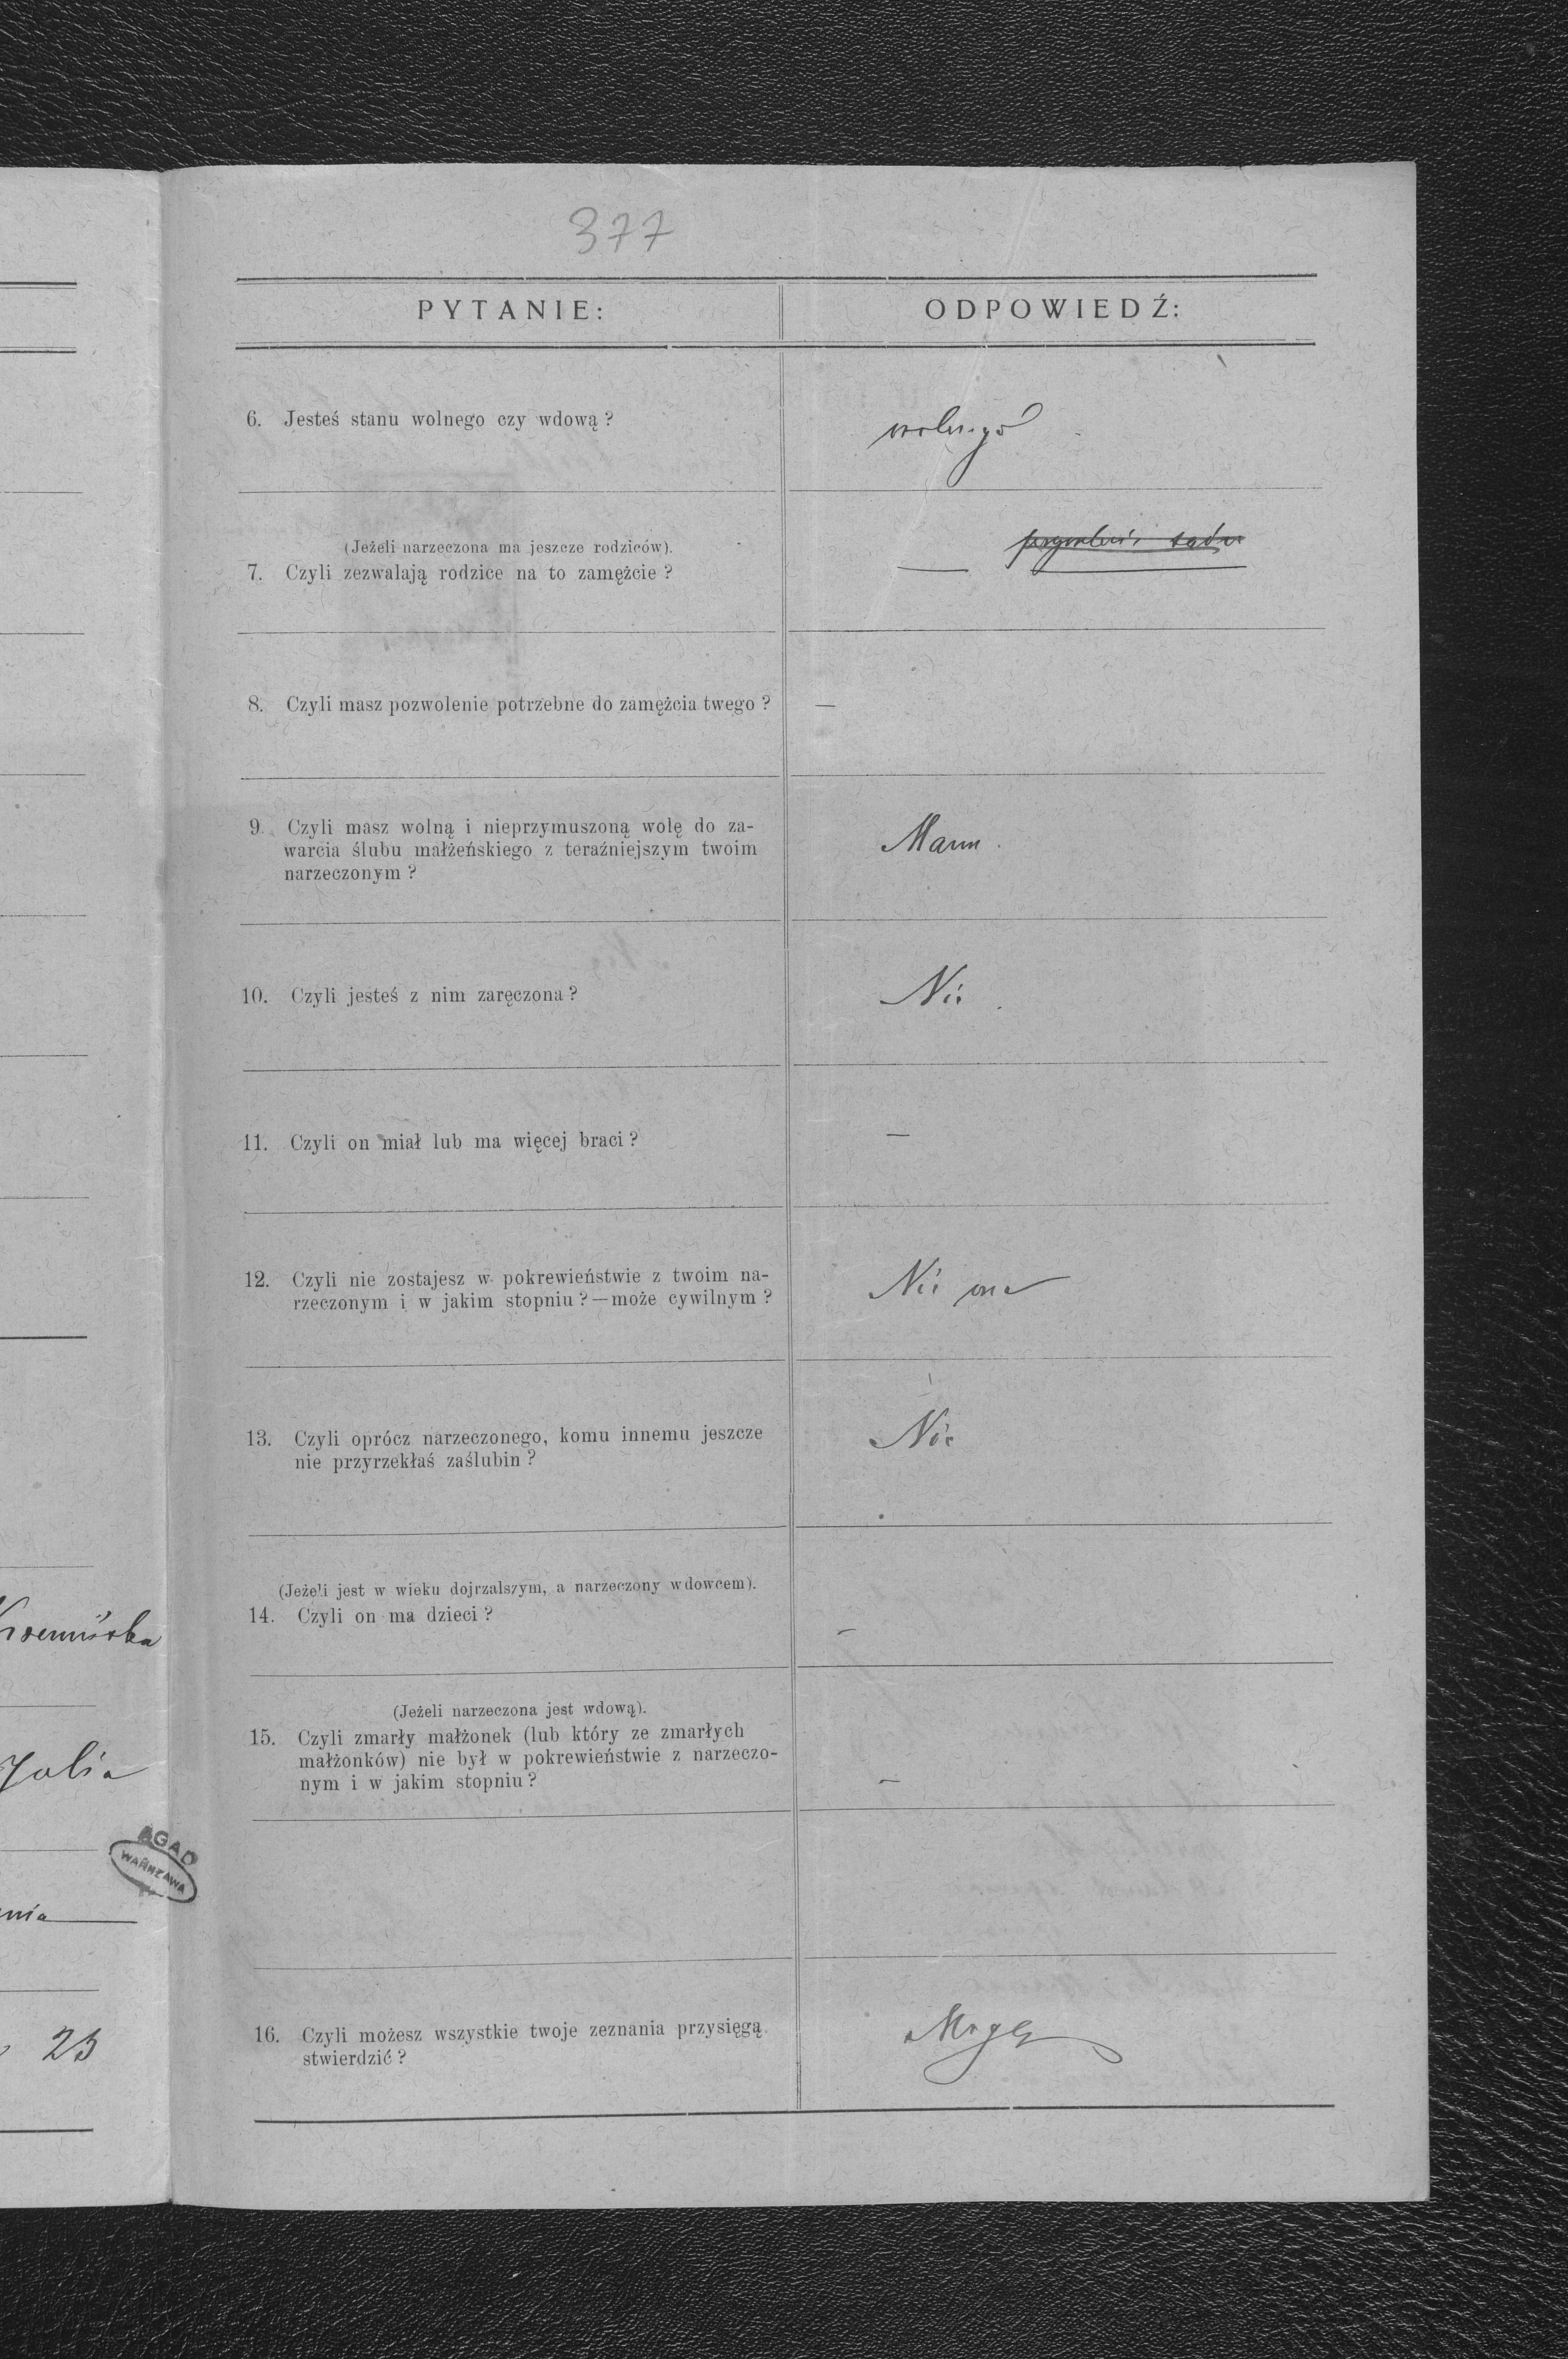 377
PYTANIE:
ODPOWIEDŹ:
6. Jesteś stanu wolnego czy wdową?
wolnego
(Jeżeli narzeczona ma jeszcze rodziców).
7. Czyli zezwalają rodzice na to zamężcie?
—
sądu
8. Czyli masz pozwolenie potrzebne do zamężcia twego?
—
9. Czyli masz wolną i nieprzymuszoną wolę do za-
warcia ślubu małżeńskiego z teraźniejszym twoim
narzeczonym?
Mam.
10. Czyli jesteś z nim zaręczona?
Nie.
11. Czyli on miał lub ma więcej braci?
—
12. Czyli nie zostajesz w pokrewieństwie z twoim na-
rzeczonym i w jakim stopniu?—może cywilnym?
Nie
13. Czyli oprócz narzeczonego, komu innemu jeszcze
nie przyrzekłaś zaślubin?
Nie
(Jeżeli jest w wieku dojrzalszym, a narzeczony wdowcem).
14. Czyli on ma dzieci?
—
(Jeżeli narzeczona jest wdową).
15. Czyli zmarły małżonek (lub który ze zmarłych
małżonków) nie był w pokrewieństwie z narzeczo-
nym i w jakim stopniu?
—
16. Czyli możesz wszystkie twoje zeznania przysięgą
stwierdzić?
Mogę
Julia
AGAD
WARSZAWA
nia
23